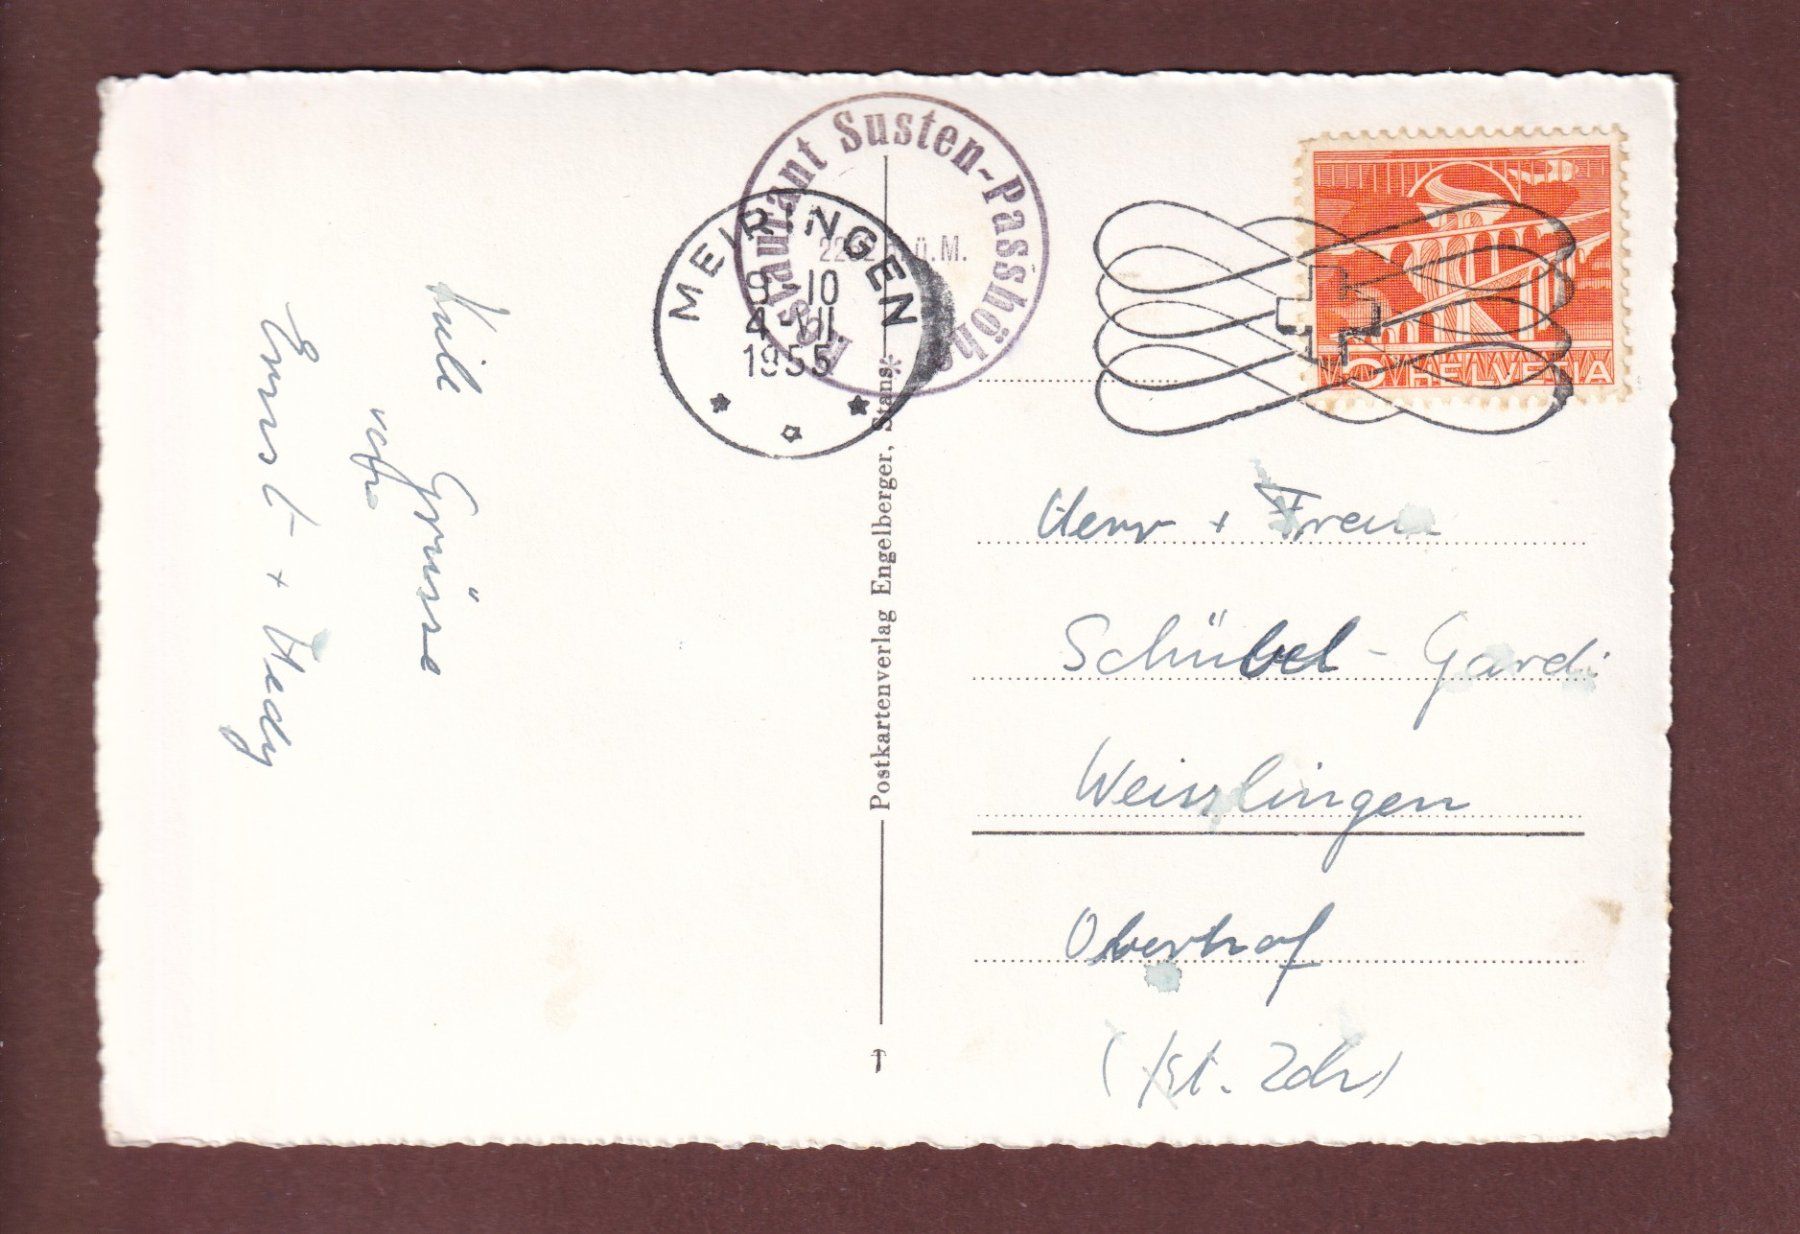 Restaurant Susten-Passhöhe
Ü.M.
MEIRINGEN
9-10
4-VII
1955
5 HELVETIA
Viele Grüsse
Ernst + Hedy
Postkartenverlag Engelberger, Stans
Herr + Frau
Schübel - Gardi
Weisslingen
Oberhof
(Kt. Zch)